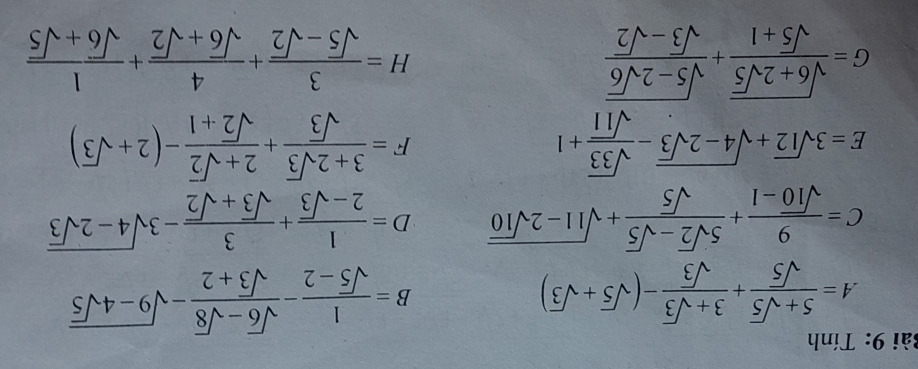 Bài 9: Tính
A = (5+√5)/√5 + (3+√3)/√3 − (√5+√3)
B = 1/(√5−2) − (√6−√8)/(√3+2) − √(9−4√5)
C = 9/(√10−1) + (5√2−√5)/√5 + √(11−2√10)
D = 1/(2−√3) + 3/(√3+√2) − 3√(4−2√3)
E = 3√12 + √(4−2√3) − √33/√11 + 1
F = (3+2√3)/√3 + (2+√2)/(√2+1) − (2+√3)
G = √(6+2√5)/(√5+1) + √(5−2√6)/(√3−√2)
H = 3/(√5−√2) + 4/(√6+√2) + 1/(√6+√5)